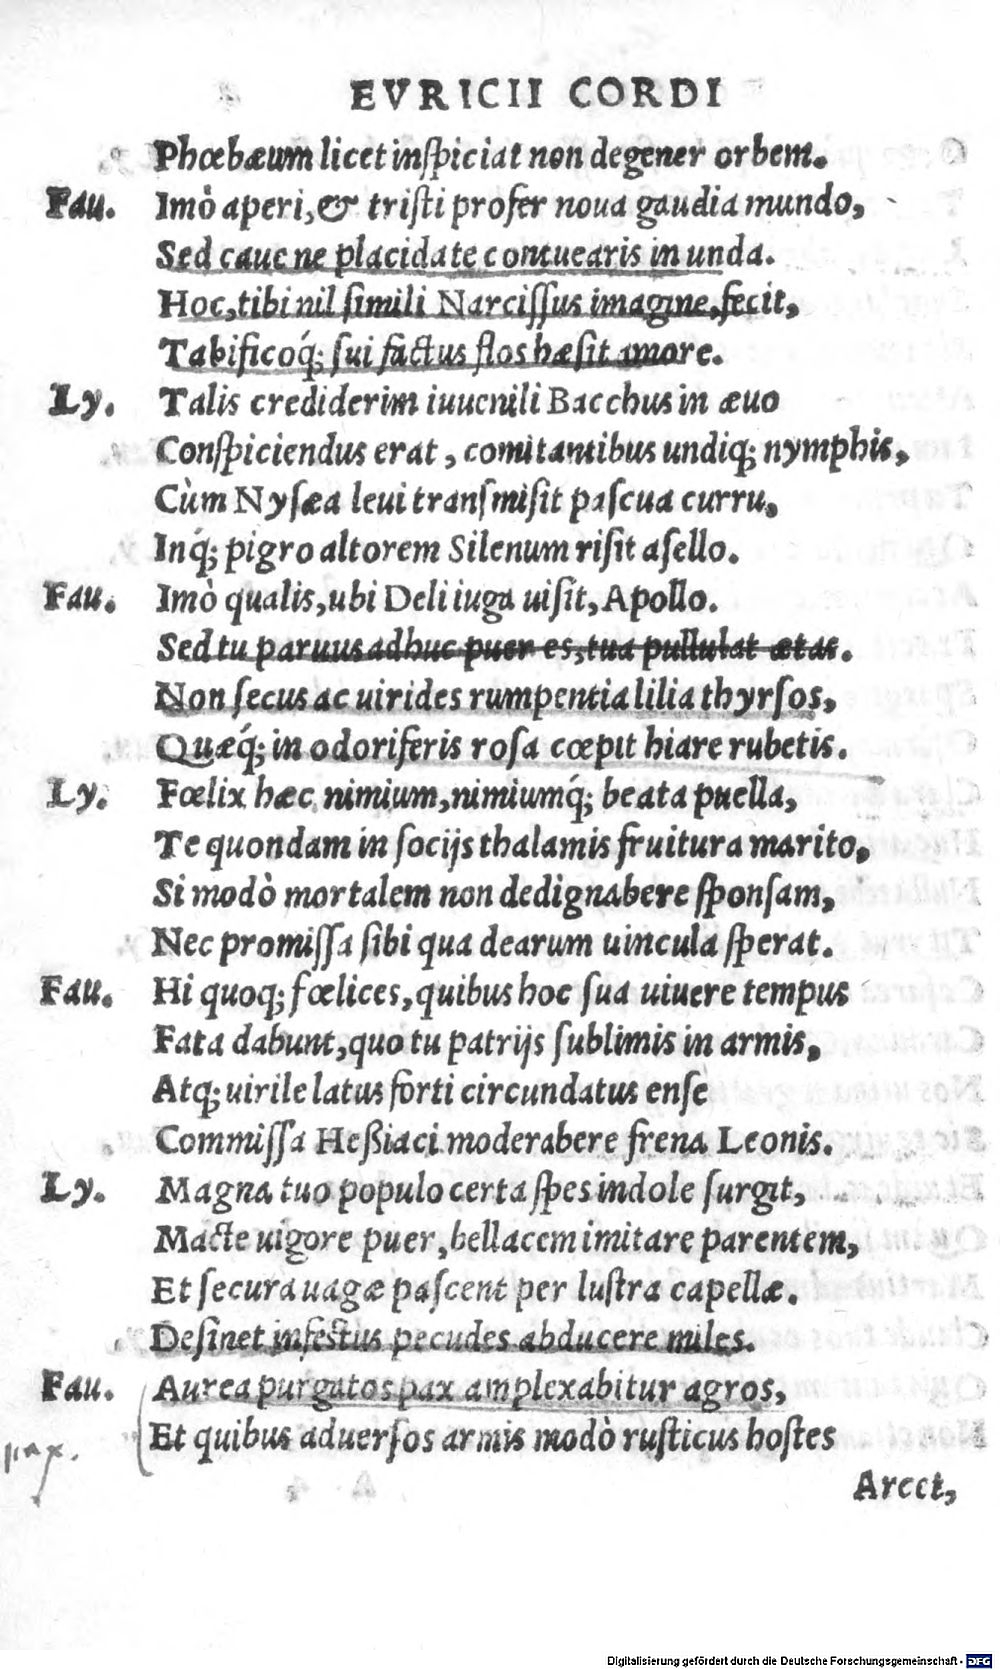 EVRICII CORDI
Phœbæum licet inſpiciat non degener orbem.
Fau. Imò aperi, & triſti profer noua gaudia mundo,
Sed caue ne placida te contuearis in unda.
Hoc, tibi nil ſimili Narciſſus imagine, fecit,
Tabificoq́; ſui factus flos hæſit amore.
Ly. Talis crediderim iuuenili Bacchus in æuo
Conſpiciendus erat, comitantibus undiq; nymphis,
Cùm Nyſæa leui tranſmiſit paſcua curru,
Inq́; pigro altorem Silenum riſit aſello.
Fau. Imò qualis, ubi Deli iuga uiſit, Apollo.
Sed tu paruus adhuc puer es, tua pullulat ætas.
Non ſecus ac uirides rumpentia lilia thyrſos,
Quæq́; in odoriferis roſa cœpit hiare rubetis.
Ly. Fœlix hæc nimium, nimiumq́; beata puella,
Te quondam in ſocijs thalamis fruitura marito,
Si modò mortalem non dedignabere ſponſam,
Nec promiſſa ſibi qua dearum uincula ſperat.
Fau. Hi quoq; fœlices, quibus hoc ſua uiuere tempus
Fata dabunt, quo tu patrijs ſublimis in armis,
Atq; uirile latus forti circundatus enſe
Commiſſa Heßiaci moderabere frena Leonis.
Ly. Magna tuo populo certa ſpes indole ſurgit,
Macte uigore puer, bellacem imitare parentem,
Et ſecura uagæ paſcent per luſtra capellæ.
Deſinet infeſtus pecudes abducere miles.
Fau. Aurea purgatos pax amplexabitur agros,
pax. Et quibus aduerſos armis modò ruſticus hoſtes
Arcet,
Digitalisierung gefördert durch die Deutsche Forschungsgemeinschaft - DFG